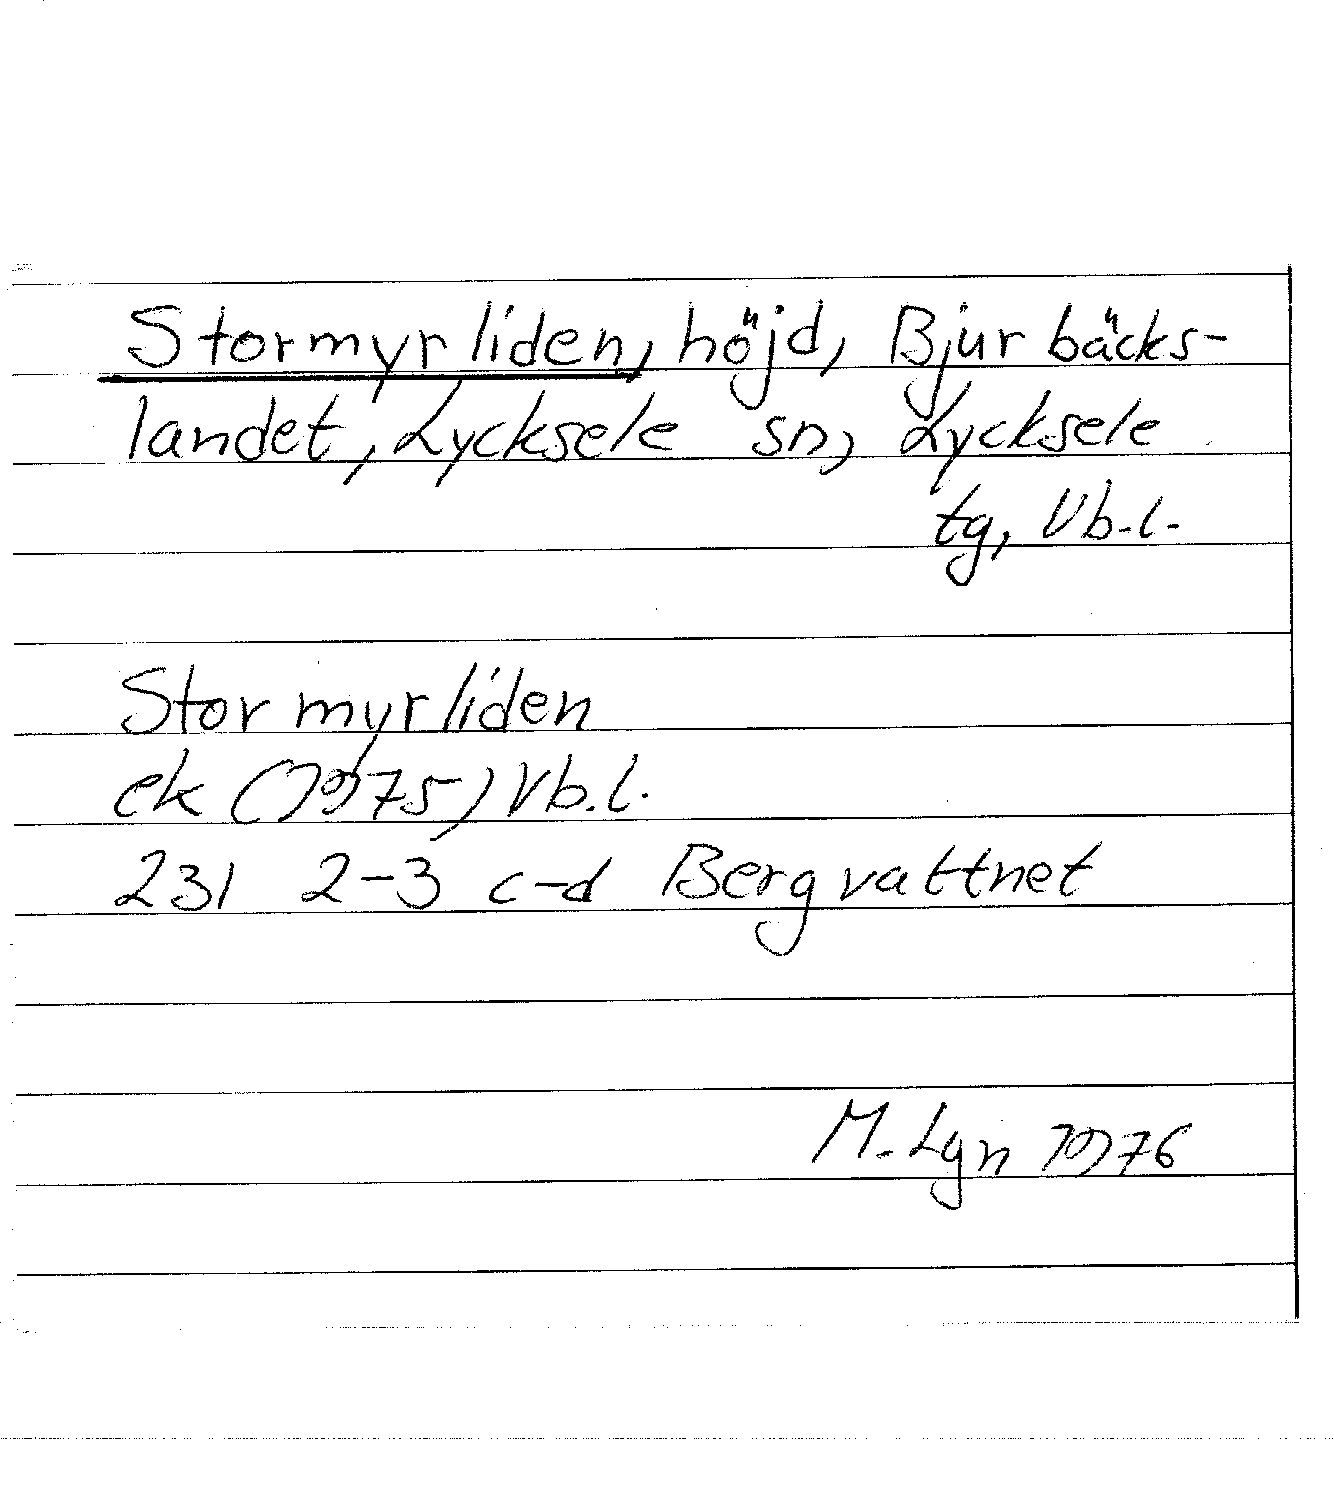 Stormyrliden, höjd, Bjurbäcks-
landet, Lycksele sn, Lycksele
tg, Vb.l.
Stormyrliden
ek (1975) Vb.l.
231 2-3 c-d Bergvattnet
M. Lgn 1976